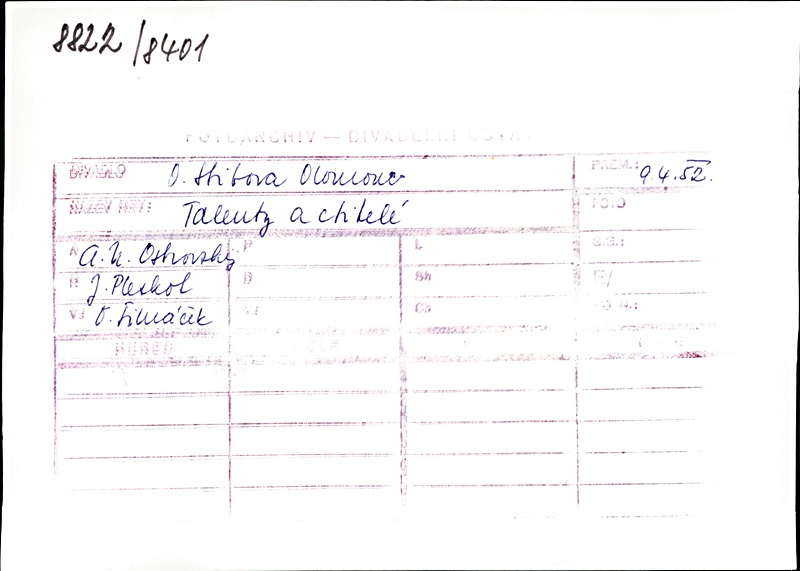 8822/8401
FOTOARCHIV — DIVADELNÍ ÚSTAV
DIVADLO O. Stibora Olomouc PREM.: 9.4.52.
NÁZEV HRY: Talenty a ctitelé FOTO
A A. N. Ostrovskij P L S.G.:
R J. Pleskot D Sh F/
V: O. Šimáček Ch
HEREC